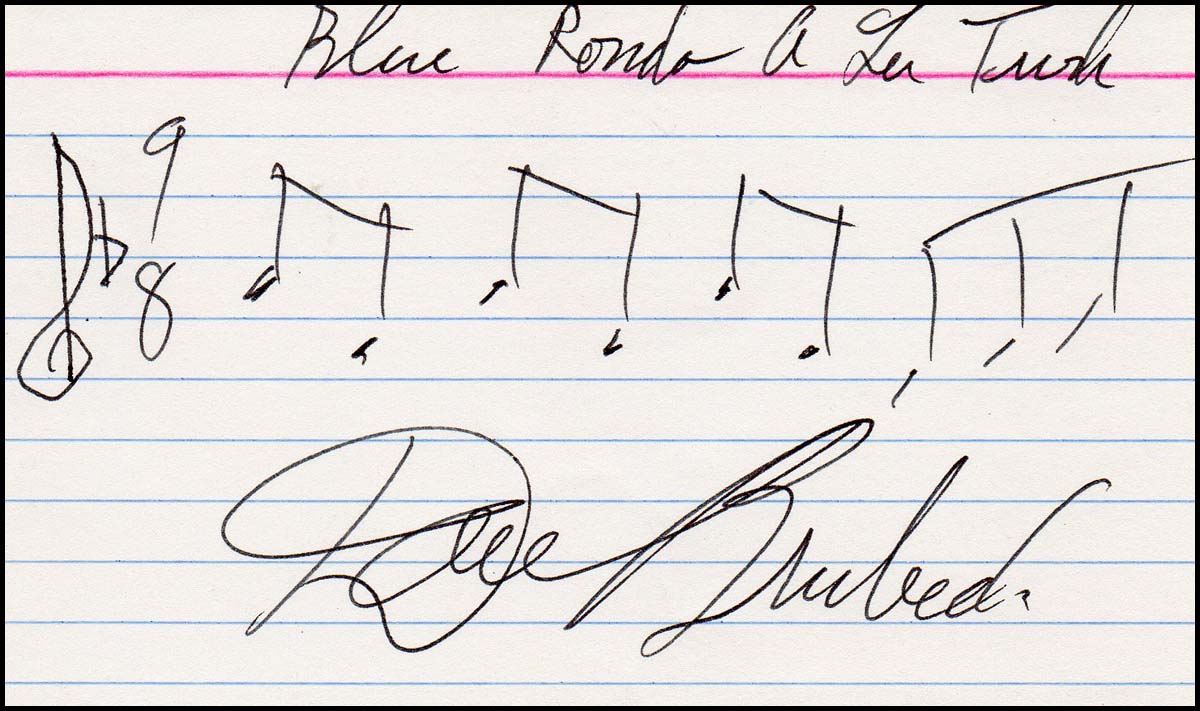 Blue Rondo A La Turk
9
8
Dave Brubeck